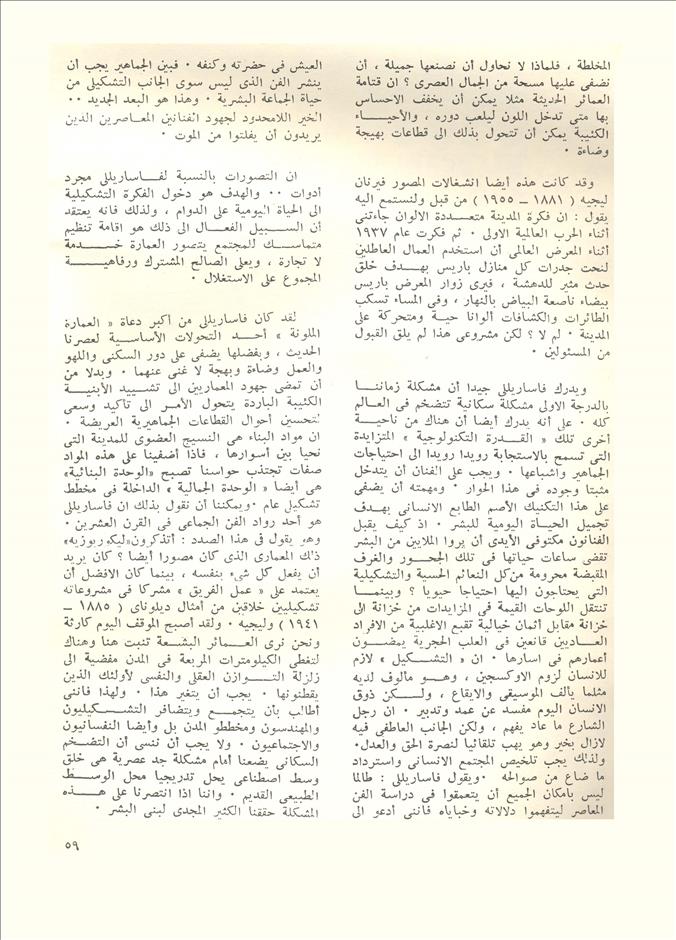 المخلطة ، فلماذا لا نحاول أن نصنعها جميلة ، أن
نضفى عليها مسحة من الجمال العصرى ؟ ان قتامة
العمائر الحديثة مثلا يمكن أن يخفف الاحساس
بها متى تدخل اللون ليلعب دوره ، والأحيـــاء
الكئيبة يمكن أن تتحول بذلك الى قطاعات بهيجة
وضاءة ٠
وقد كانت هذه أيضا انشغالات المصور فيرنان
ليجيه ( ١٨٨١ ــ ١٩٥٥ ) من قبل ولنستمع اليه
يقول : ان فكرة المدينة متعـــددة الالوان جاءتنى
أثناء الحرب العالمية الاولى ٠ ثم فكرت عام ١٩٣٧
أثناء المعرض العالمى أن استخدم العمال العاطلين
لنحت جدرات كل منازل باريس بهـــدف خلق
حدث مثير للدهشة ، فيرى زوار المعرض باريس
بيضاء ناصعة البياض بالنهار ، وفى المساء تسكب
الطائرات والكشافات ألوانا حيـــة ومتحركة على
المدينة ٠ لم لا ؟ لكن مشروعى هذا لم يلق القبول
من المسئولين ٠
ويدرك فاساريللى جيدا أن مشكلة زماننـــا
بالدرجة الاولى مشكلة سكانية تتضخم فى العـالم
كله ٠ على أنه يدرك أيضا أن هناك من ناحيـــة
أخرى تلك « القـــدرة التكنولوجية » المتزايدة
التى تسمح بالاستجابة رويدا رويدا الى احتياجات
الجماهير واشباعها ٠ ويجب على الفنان أن يتدخل
مثبتا وجوده فى هذا الحوار ٠ ومهمته أن يضفى
على هذا التكنيك الأصم الطابع الانسانى بهـدف
تجميل الحيـاة اليومية للبشر ٠ اذ كيف يقبل
الفنانون مكتوفى الأيدى أن يروا الملايين من البشر
تقضى ساعات حياتها فى تلك الجحـــور والغرف
المقبضة محرومة من كل النعائم الحسية والتشكيلية
التى يحتاجون اليها احتياجا حيويا ؟ وبينمـــا
تنتقل اللوحات القيمة فى المزايدات من خزانة الى
خزانة مقابل أثمان خيالية تقبع الاغلبية من الافراد
العـــاديين قانعين فى العلب الحجرية يمضـــون
أعمارهم فى اسارها ٠ ان « التشـــكيل » لازم
للانسان لزوم الاوكسجين ، وهـــو مألوف لديه
مثلما يألف الموسيقى والايقاع ، ولـــكن ذوق
الانسان اليوم مفسد عن عمد وتدبير ٠ ان رجل
الشارع ما عاد يفهم ، ولكن الجانب العاطفى فيه
لازال بخير وهو يهب تلقائيا لنصرة الحق والعدل٠
ولذلك يجب تلخيص المجتمع الانسانى واسترداد
ما ضاع من صوالحه ٠ ويقول فاساريللى : طالما
ليس بامكان الجميع أن يتعمقوا فى دراسة الفن
المعاصر ليتفهموا دلالاته وخباياه فاننى أدعو الى
العيش فى حضرته وكنفه ٠ فبين الجماهير يجب أن
ينشر الفن الذى ليس سوى الجانب التشكيلى من
حياة الجماعة البشرية ٠ وهذا هو البعد الجديد ٠٠
الخير اللامحدود لجهود الفنانين المعـاصرين الذين
يريدون أن يفلتوا من الموت ٠
ان التصورات بالنسبة لفـــاساريللى مجرد
أدوات ٠٠ والهدف هو دخول الفكرة التشكيلية
الى الحياة اليومية على الدوام ، ولذلك فانه يعتقد
أن الســـبيل الفعـــال الى ذلك هو اقامة تنظيم
متماسـك للمجتمع يتصور العمارة خـــدمة
لا تجارة ، ويعلى الصالح المشترك ورفاهيـــة
المجموع على الاستغلال ٠
لقد كان فاساريللى من أكبر دعاة « العمارة
الملونة » أحـــد التحولات الأساسـية لعصرنا
الحديث ، وبفضلها يضفى على دور السكنى واللهو
والعمل وضاءة وبهجة لا غنى عنهما ٠ وبدلا من
أن تمضى جهود المعماريين الى تشـــييد الأبنيـــة
الكئيبة الباردة يتحول الأمـر الى تأكيد وسعى
لتحسين أحوال القطاعات الجماهيرية العريضة ٠
ان مواد البناء هى النسيج العضوى للمدينة التى
نحيا بين أسوارها ، فاذا أضفينا على هذه المواد
صفات تجتذب حواسنا تصبح «الوحدة البنائية»
هى أيضا « الوحدة الجمالية » الداخلة فى مخطط
تشكيلى عام ٠ ويمكننا أن نقول بذلك ان فاساريللى
هو أحد رواد الفن الجماعى فى القرن العشرين ٠
وهو يقول فى هذا الصدد : أتذكرون«ليكوربوزيه»
ذلك المعمارى الذى كان مصورا أيضا ؟ كان يريد
أن يفعل كل شىء بنفسه ، بينما كان الافضل أن
يعتمد على « عمل الفريق » مشركا فى مشروعاته
تشكيليين خلاقين من أمثال ديلوناى ( ١٨٨٥ ــ
١٩٤١ ) وليجيه ٠ ولقد أصبح الموقف اليوم كارثة
ونحن نرى العـــمائر البشـعة تنبت هنا وهناك
لتغطى الكيلومترات المربعة فى المدن مفضية الى
زلزلة التـــوازن العقلى والنفسى لأولئك الذين
يقطنونها ٠ يجب أن يتغير هذا ٠ ولهذا فاننى
أطالب بأن يتجمـــع ويتضافر التشـــكيليون
والمهندسون ومخططو المدن بل وأيضا النفسانيون
والاجتماعيون ٠ ولا يجب أن ننسى أن التضـخم
السكانى يضعنا أمام مشكلة جد عصرية هى خلق
وسط اصطناعى يحل تدريجيا محل الوســـط
الطبيعى القديم ٠ واننا اذا انتصرنا على هـــذه
المشكلة حققنا الكثير المجدى لبنى البشر ٠
٥٩